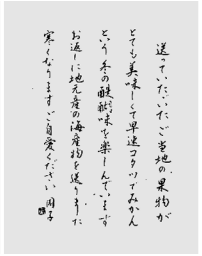 送っていただいたご当地の果物が
とても美味しくて早速コタツでみかん
という冬の醍醐味を楽しんでいます
お返しに地元産の海産物を送りました
寒くなりますご自愛ください 周子